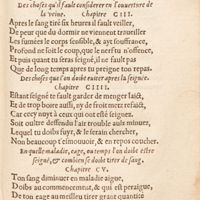 Des choses qu'il fault considerer en l'ouuerture de
la veine. Chapitre CIII.
Apres le sang tiré six heures il fault veiller,
De peur que du dormir ne viennent trouiller
Les fumees le corps sensible, & ayt souffrance,
Profond ne soit le coup, que le nerf n'offence,
Et puis quant tu seras seigné, il ne fault pas
Que de long temps apres tu prigne ton repas.
Des choses que l'on doibt euiter apres la seignee.
Chapitre CIIII.
Estant seigné te fault garder de menger laict,
Et de trop boire aussi, ny de froit metz refaict,
Car cecy nuyt à ceux qui ont esté seignez.
Soit oultre deffendu l'air trouble aulx mineurs,
Lequel tu doibs fuyr, & le serain chercher,
Non beaucoup t'emouuoir, & en repos coucher.
En quelle maladie, eage, ou temps l'on doibt estre
seigné, & combien se doibt tirer de sang.
Chapitre CV.
Ton sang diminuer en maladie aigue,
Doibs au commencement, & qui est peraigue,
De ton eage au meilleu tirer grant quantité